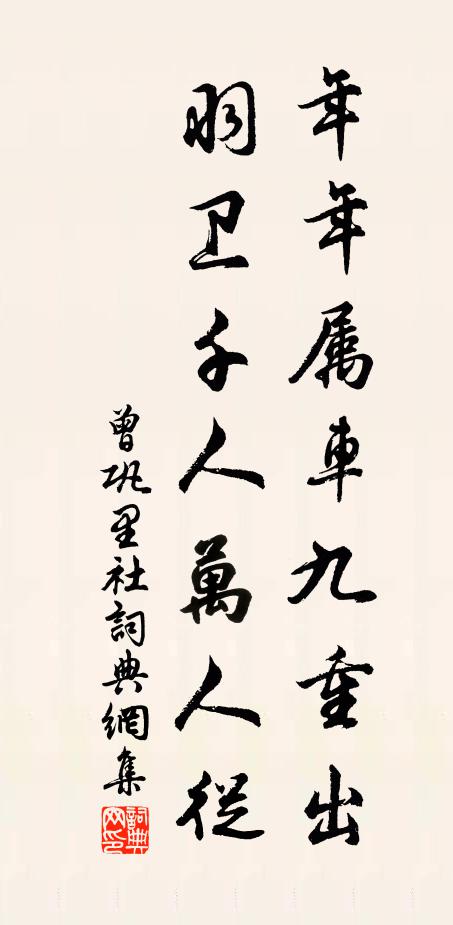 年年属車九重出
羽卫千人萬人從
曾巩里社詞典網集
詞典网印